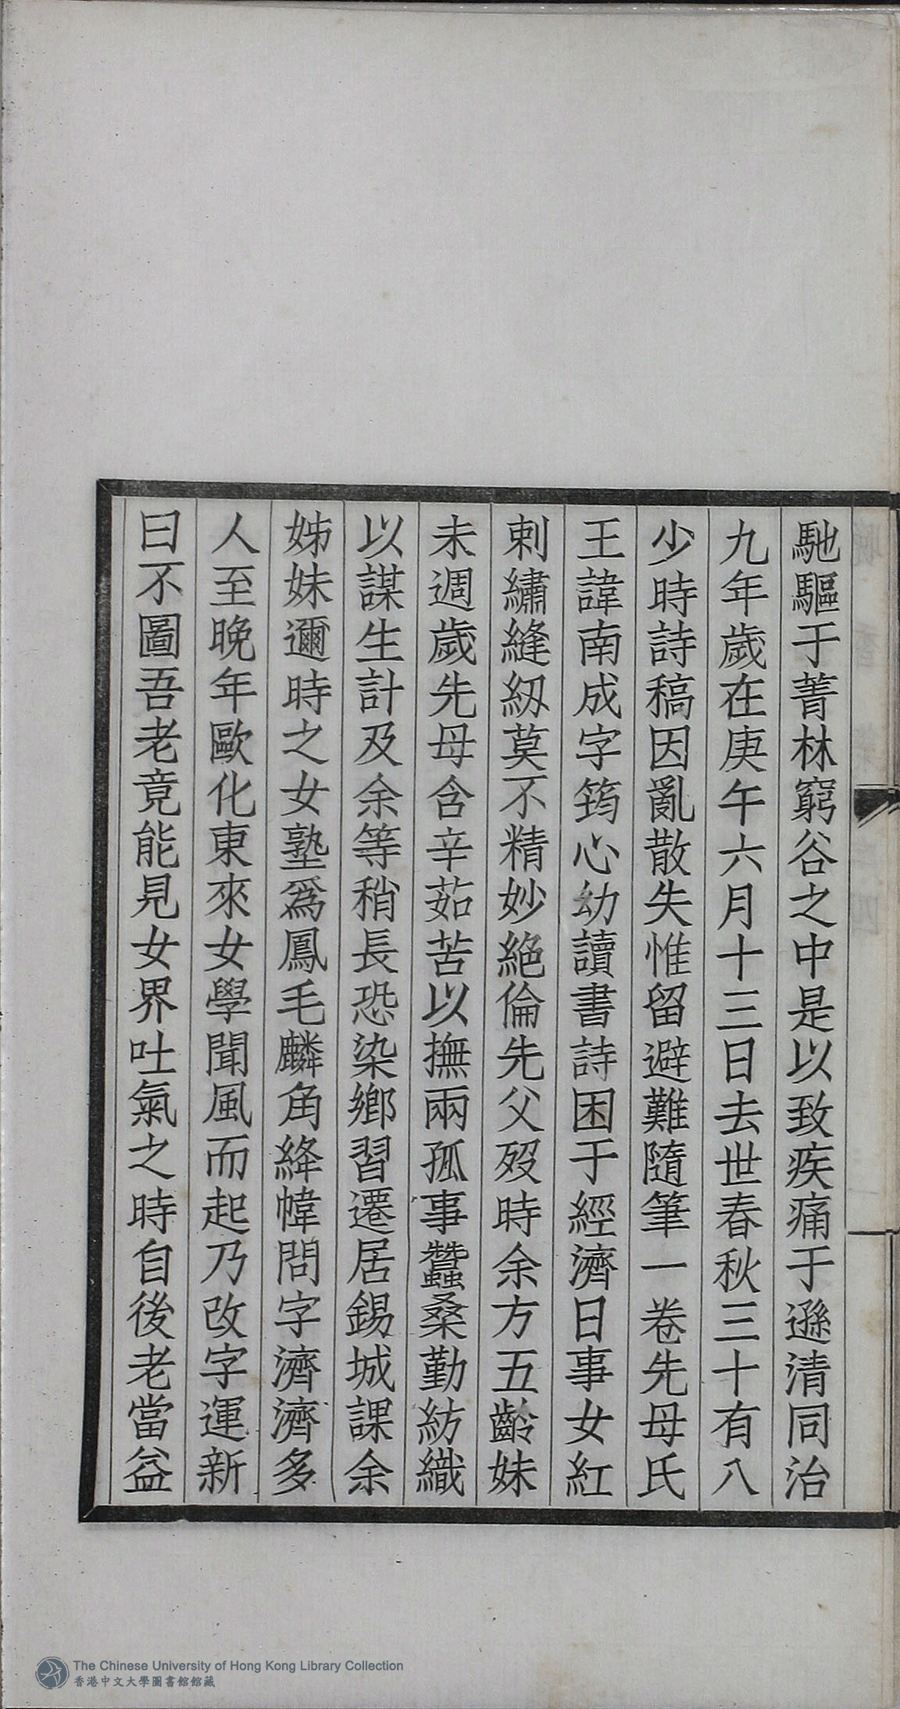 馳驅于菁林窮谷之中是以致疾痛于遜清同治
九年歲在庚午六月十三日去世春秋三十有八
少時詩稿因亂散失惟留避難隨筆一卷先母氏
王諱南成字筠心幼讀書詩困于經濟日事女紅
刺繡縫紉莫不精妙絕倫先父歿時余方五齡妹
未週歲先母含辛茹苦以撫兩孤事蠶桑勤紡織
以謀生計及余等稍長恐染鄉習遷居錫城課余
姊妹邇時之女塾爲鳳毛麟角絳幃問字濟濟多
人至晚年歐化東來女學聞風而起乃改字運新
曰不圖吾老竟能見女界吐氣之時自後老當益
The Chinese University of Hong Kong Library Collection
香港中文大學圖書館館藏